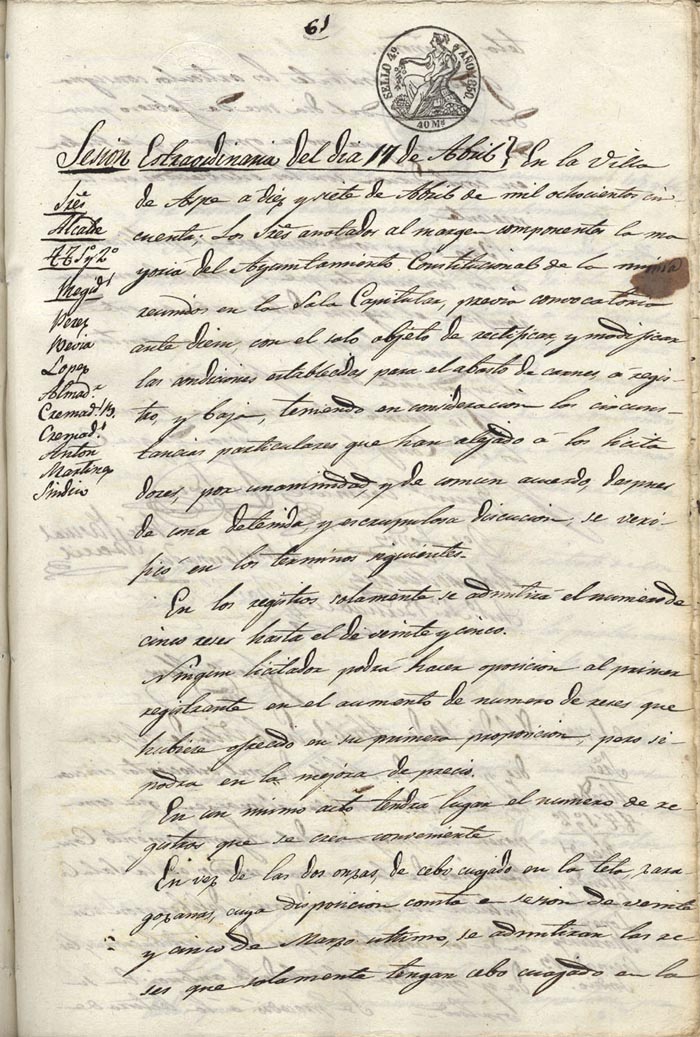 61
SELLO 4º AÑO 1850.
40 Ms
Sesion Estraordinaria del dia 17 de Abril} En la Villa
Sres
Alcalde
Regids
Perez
Nevia
Lopez
Almadr
Cremads
Cremads
Anton
Martinez
Sindico
de Aspe a diez y siete de Abril de mil ochocientos cin
cuenta: Los Sres anotados al margen componentes la ma
yoria del Ayuntamiento Constitucional de la misma
reunidos en la Sala Capitular, previa convocatoria
ante diem, con el solo objeto de rectificar, y modificar
las condiciones establecidas para el abasto de carnes, a regis-
tro, y baja, teniendo en consideracion las circuns-
tancias particulares que han alejado á los licita
dores, por unanimidad, y de comun acuerdo, despues
de una detenida, y escrupulosa discucion, se veri-
ficó en los terminos siguientes.
En los registros solamente se admitirá el numero de
cinco reses hasta el de veinte y cinco.
Ningun licitador podrá hacer oposicion al primer
registrante en el aumento de numero de reses que
hubiere ofrecido en su primera proposicion, pero si
podra en la mejora de precio.
En un mismo acto tendrá lugar el numero de re
gistros que se crea conveniente
En vez de las dos onzas, de cebo cuajado en la tela, zara
gozanas, cuya disposicion consta en sesion de veinte
y cinco de Marzo ultimo, se admitiran las re
ses que solamente tengan cebo cuajado en la